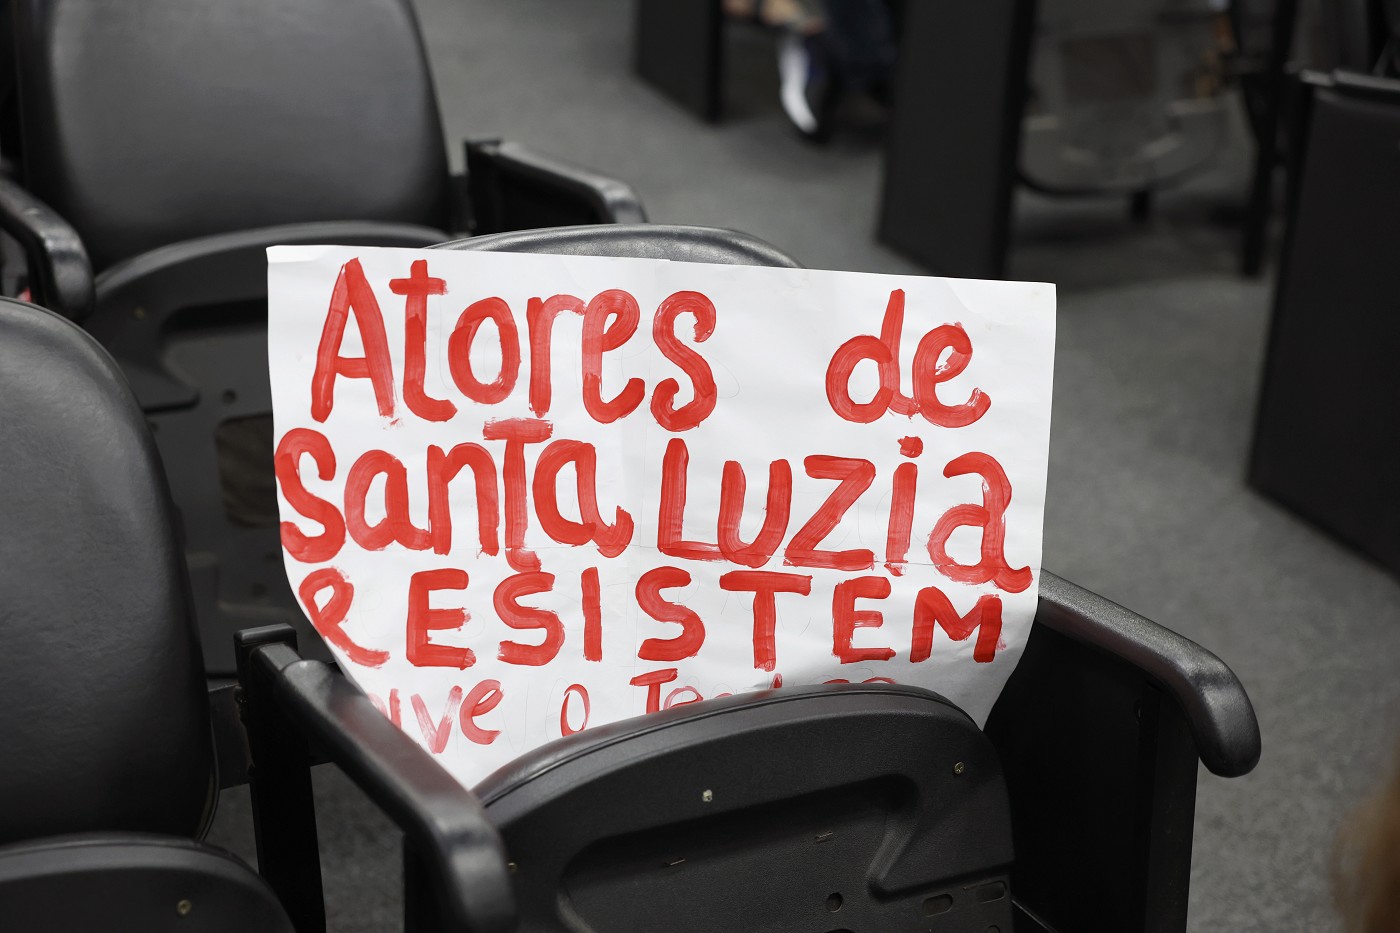 Atores de
Santa Luzia
RESISTEM
o